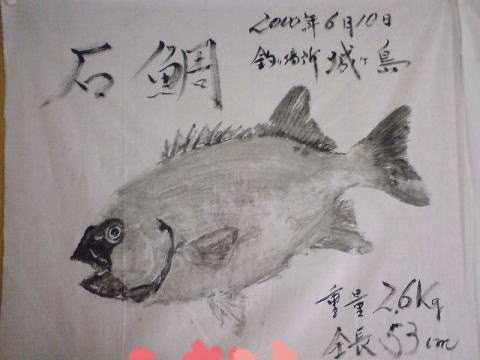 石鯛
2000年6月10日
釣り場所 城ヶ島
重量 2.6Kg
全長 53cm